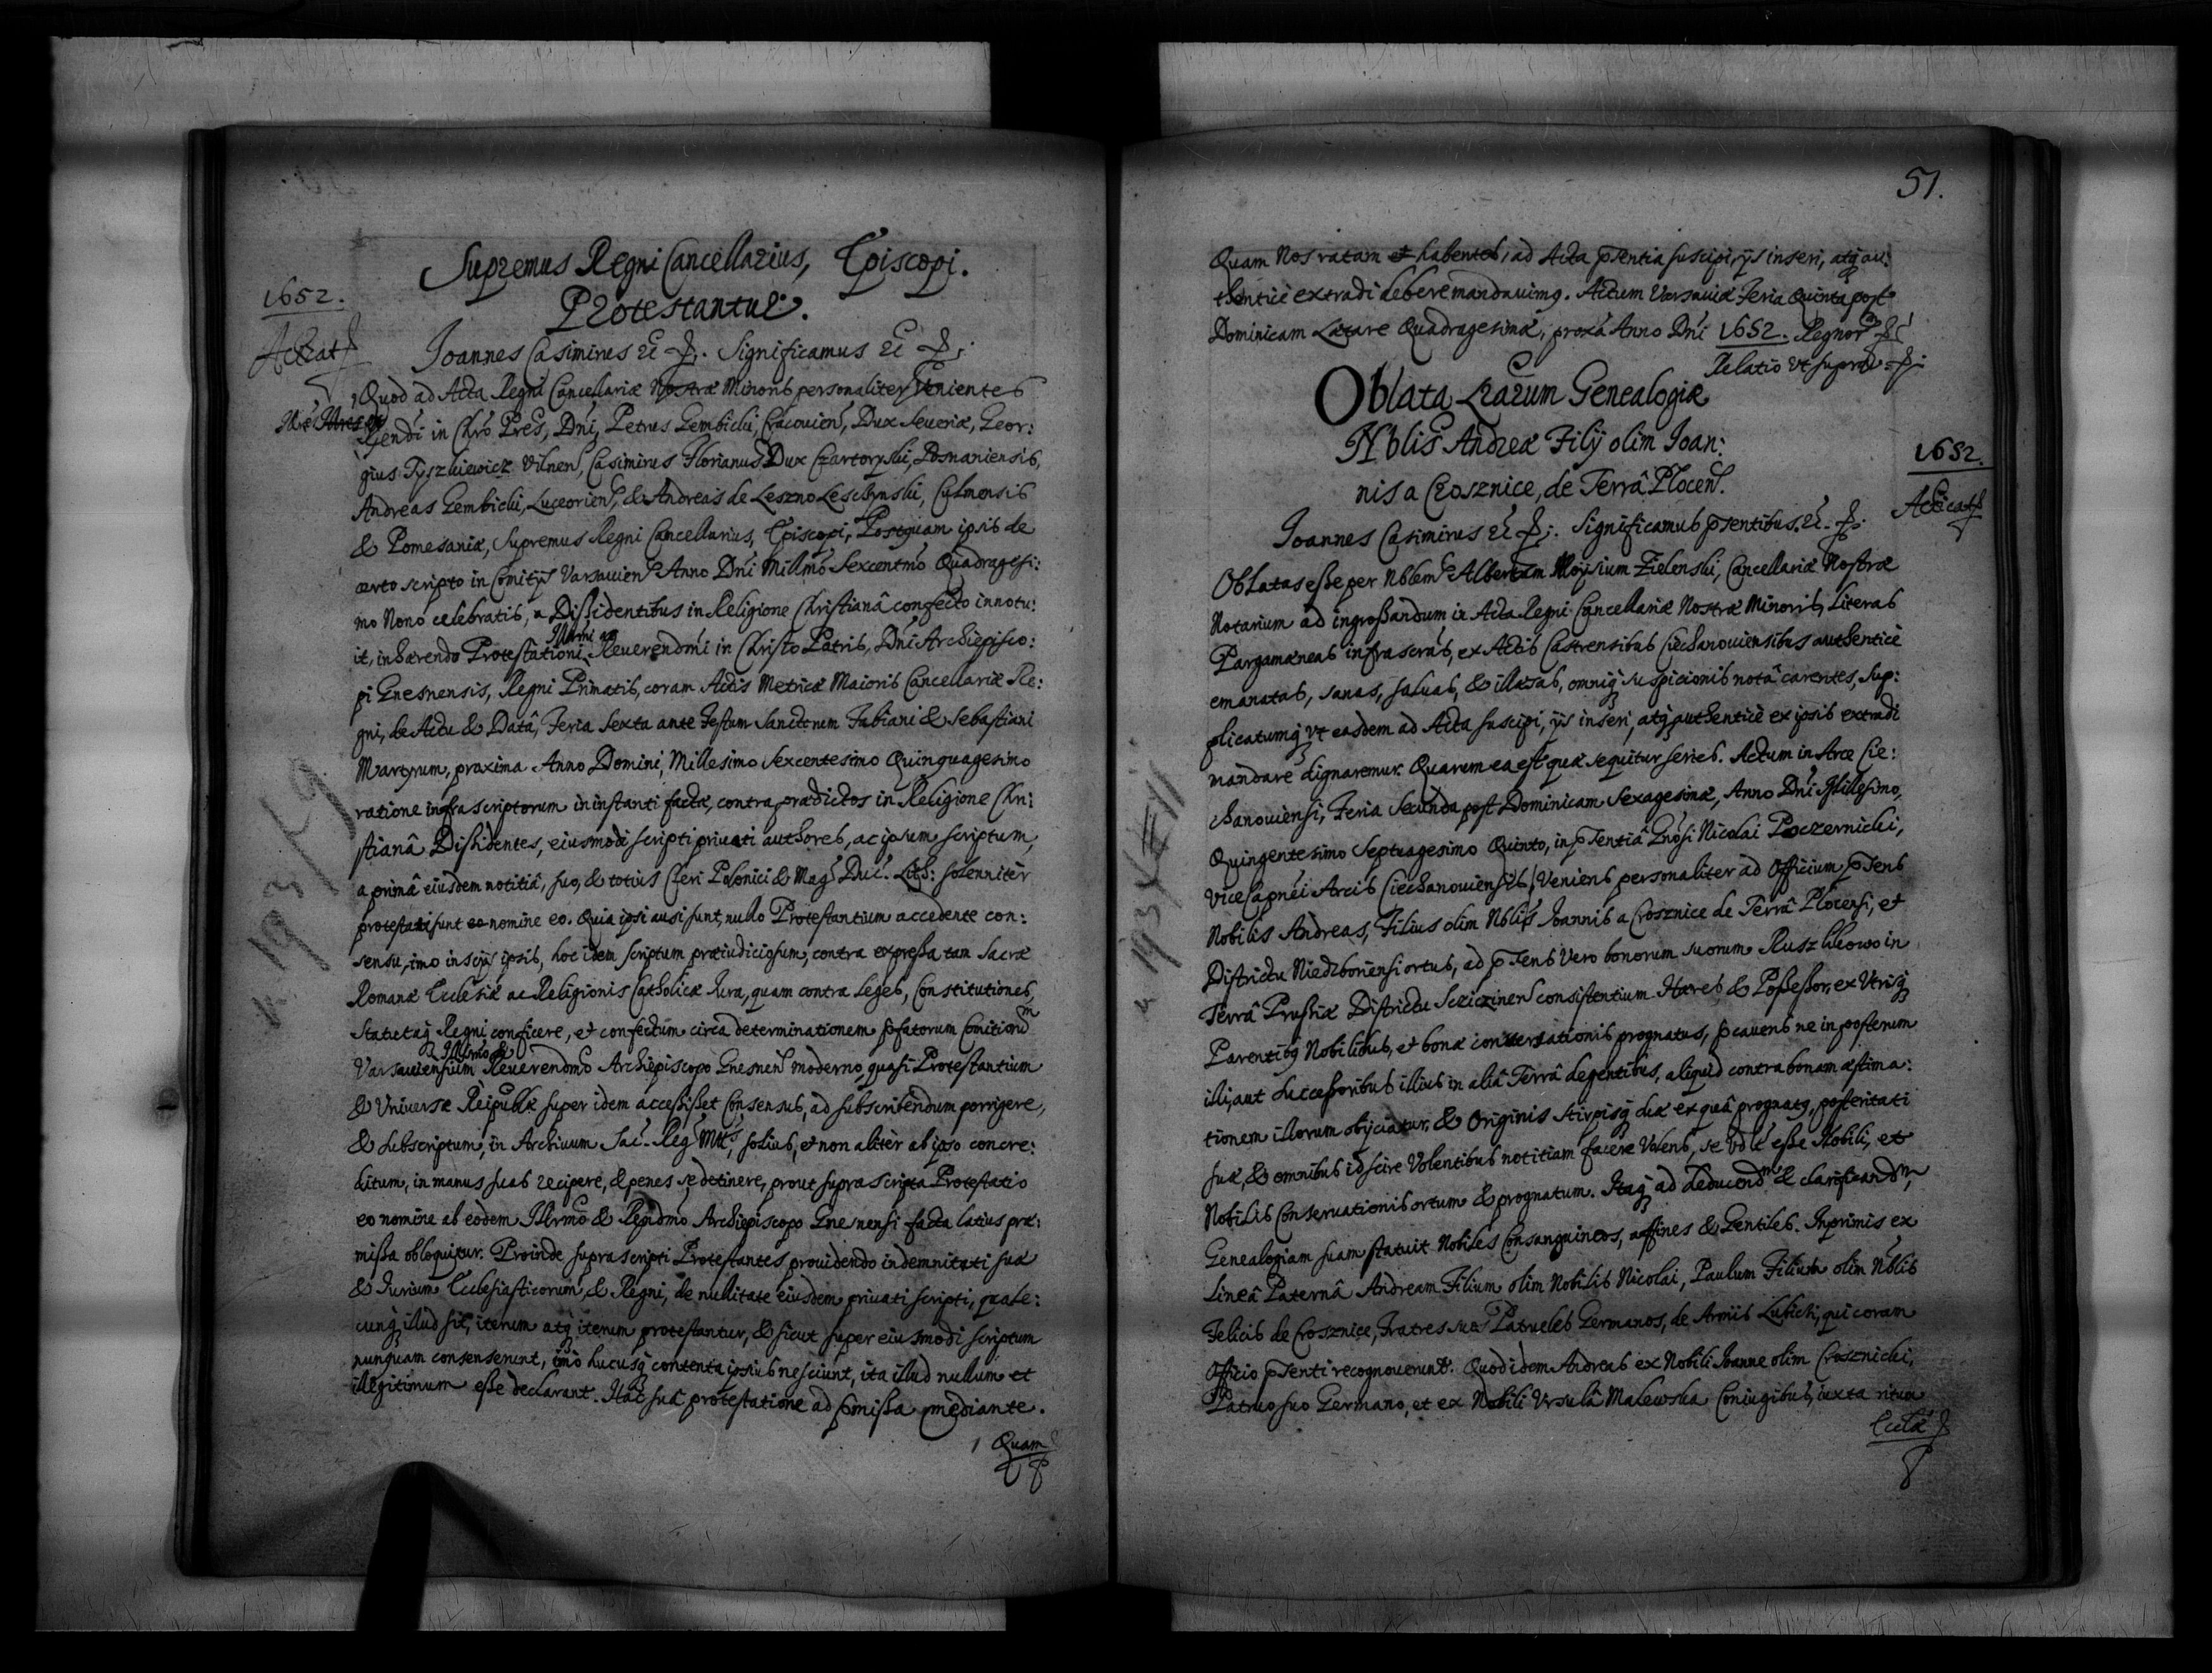 Supremus Regni Cancellarius, Episcopi.
Protestantur.
1652.
Joannes Casimirus Significamus
Quod ad Acta Regni Cancellariæ Nostræ Minoris personaliter Venientes
Rendi in Chro Pres, Dni, Petrus Gembicki, Cracovien, Dux Severiæ, Geor:
gius Tyszkiewicz Vilnen, Casimirus Florianus Dux Czartoryski, Posnaniensis,
Andreas Gembicki, Luceorien, & Andreas de Leszno Lesczynski, Culmensis
& Pomesaniæ, Supremus Regni Cancellarius, Episcopi, Postquam ipsis de
certo scripto in Comitijs Varsavien Anno Dni Millmo Sexcentmo Quadragesi:
mo Nono celebratis, a Dissidentibus in Religione Christianâ confecto innotu:
it, inhærendo Protestationi Illrmi ac Reverendmi in Christo Patris, Dni Archiepisco:
pi Gnesnensis, Regni Primatis, coram Actis Metricæ Maioris Cancellariæ Re:
gni, de Actu & Datâ, Feria Sexta ante Festum Sanctorum Fabiani & Sebastiani
Martyrum, proxima Anno Domini, Millesimo Sexcentesimo Quinquagesimo
ratione infra scriptorum in instanti factæ, contra prædictos in Religione Chri:
stianâ Dissidentes, eiusmodi scripti privati authores, ac ipsum scriptum,
a primâ eiusdem notitiâ, suo, & totius Cleri Polonici & Mag Duc. Lith: solenniter
protestati sunt eo nomine eo. Quia ipsi ausi sunt, nullo Protestantium accedente con:
sensu, imo inscijs ipsis, hoc idem scriptum præiudiciosum, contra expressa tam Sacræ
Romanæ Ecclesiæ ac Religionis Catholicæ Iura, quam contra Leges, Constitutiones,
Statutaq Regni conficere, et confectum circa determinationem præfatorum Comitiorum
Varsaviensium Illrmo & Reverendmo Archiepiscopo Gnesnen moderno, quasi Protestantium
& Universæ Reipublæ super idem accessisset Consensus, ad subscribendum porrigere,
& subscriptum, in Archivum Sac. Reg Mtis, solius, et non aliter ab ipso concre:
ditum, in manus suas recipere, & penes se detinere, prout suprascripta Protestatio
eo nomine ab eodem Illrmo & Rendmo Archiepiscopo Gnesnensi facta latius præ:
missa obloquitur. Proinde suprascripti Protestantes providendo indemnitati suæ
& Iurium Ecclesiasticorum & Regni, de nullitate eiusdem privati scripti, quale:
cunq illud sit, iterum atq iterum protestantur, & sicut super eiusmodi scriptum
nunquam consenserunt, imò hucusq contenta ipsius nesciunt, ita illud nullum et
illegitimum esse declarant. Hac suâ protestatione ad præmissa mediante.
Quam
51.
Quam Nos ratam habentes, ad Acta præsentia suscipi, ijs inseri, atq au:
thenticè extradi debere mandavimq. Actum Varsaviæ Feria Quinta post
Dominicam Lætare Quadragesimæ, proxa Anno Dni 1652. Regnor
Relatio ut supra
Oblata Lrarum Genealogiæ
Nblis Andreæ Filij olim Ioan:
nis a Crosznice, de Terrâ Plocen.
1652.
Joannes Casimirus Significamus præsentibus.
Oblatas esse per Nblem Albertum Aloysium Zielenski, Cancellariæ Nostræ
Notarium ad ingrossandum in Acta Regni Cancellariæ Nostræ Minoris, Literas
Pargameneas infrascras, ex Actis Castrensibus Ciechanoviensibus authenticè
emanatas, sanas, salvas, & illæsas, omniq suspicionis notâ carentes, sup:
plicatumq ut easdem ad Acta suscipi, ijs inseri, atq authenticè ex ipsis extradi
mandare dignaremur. Quarum ea est quæ sequitur series. Actum in Arce Cie:
chanoviensi, Feria Secunda post Dominicam Sexagesimæ, Anno Dni Millesimo,
Quingentesimo Septuagesimo Quinto, in præsentiâ Gnosi Nicolai Poczernicki,
Vice Capnei Arcis Ciechanoviensis, Veniens personaliter ad Officium præsens
Nobilis Andreas, Filius olim Nblis Joannis a Crosznice de Terrâ Plocensi, et
Districtu Niedzboriensi ortus, ad præsens vero bonorum suorum Ruszkowo in
Terrâ Prussiæ Districtu consistentium Hæres & Possessor, ex Utrisq
Parentibq Nobilibus, et bonæ conversationis prognatus, præcavens ne in posterum
illi, aut Successoribus illius in aliâ Terrâ degentibus, aliquid contra bonam æstima:
tionem illorum obijciatur, & Originis stirpisq suæ ex quâ prognatq, posteritati
suæ, & omnibus id scire Volentibus notitiam facere Volens, se esse Nobili, et
Nobilis Conservationis ortum & prognatum. Itaq ad deducendm & clarificandm,
Genealogiam suam statuit Nobiles Consanguineos, affines & Gentiles. Inprimis ex
Lineâ Paternâ Andream Filium olim Nobilis Nicolai, Paulum Filium olim Nblis
Felicis de Crosznice, Fratres suos Patrueles Germanos, de Armis Lubicz, qui coram
Officio præsenti recognoverunt. Quod idem Andreas ex Nobili Joanne olim Crosznicki,
Patruo suo Germano, et ex Nobili Ursulâ Malewska Coniugibus, iuxta ritum
Ecclæ